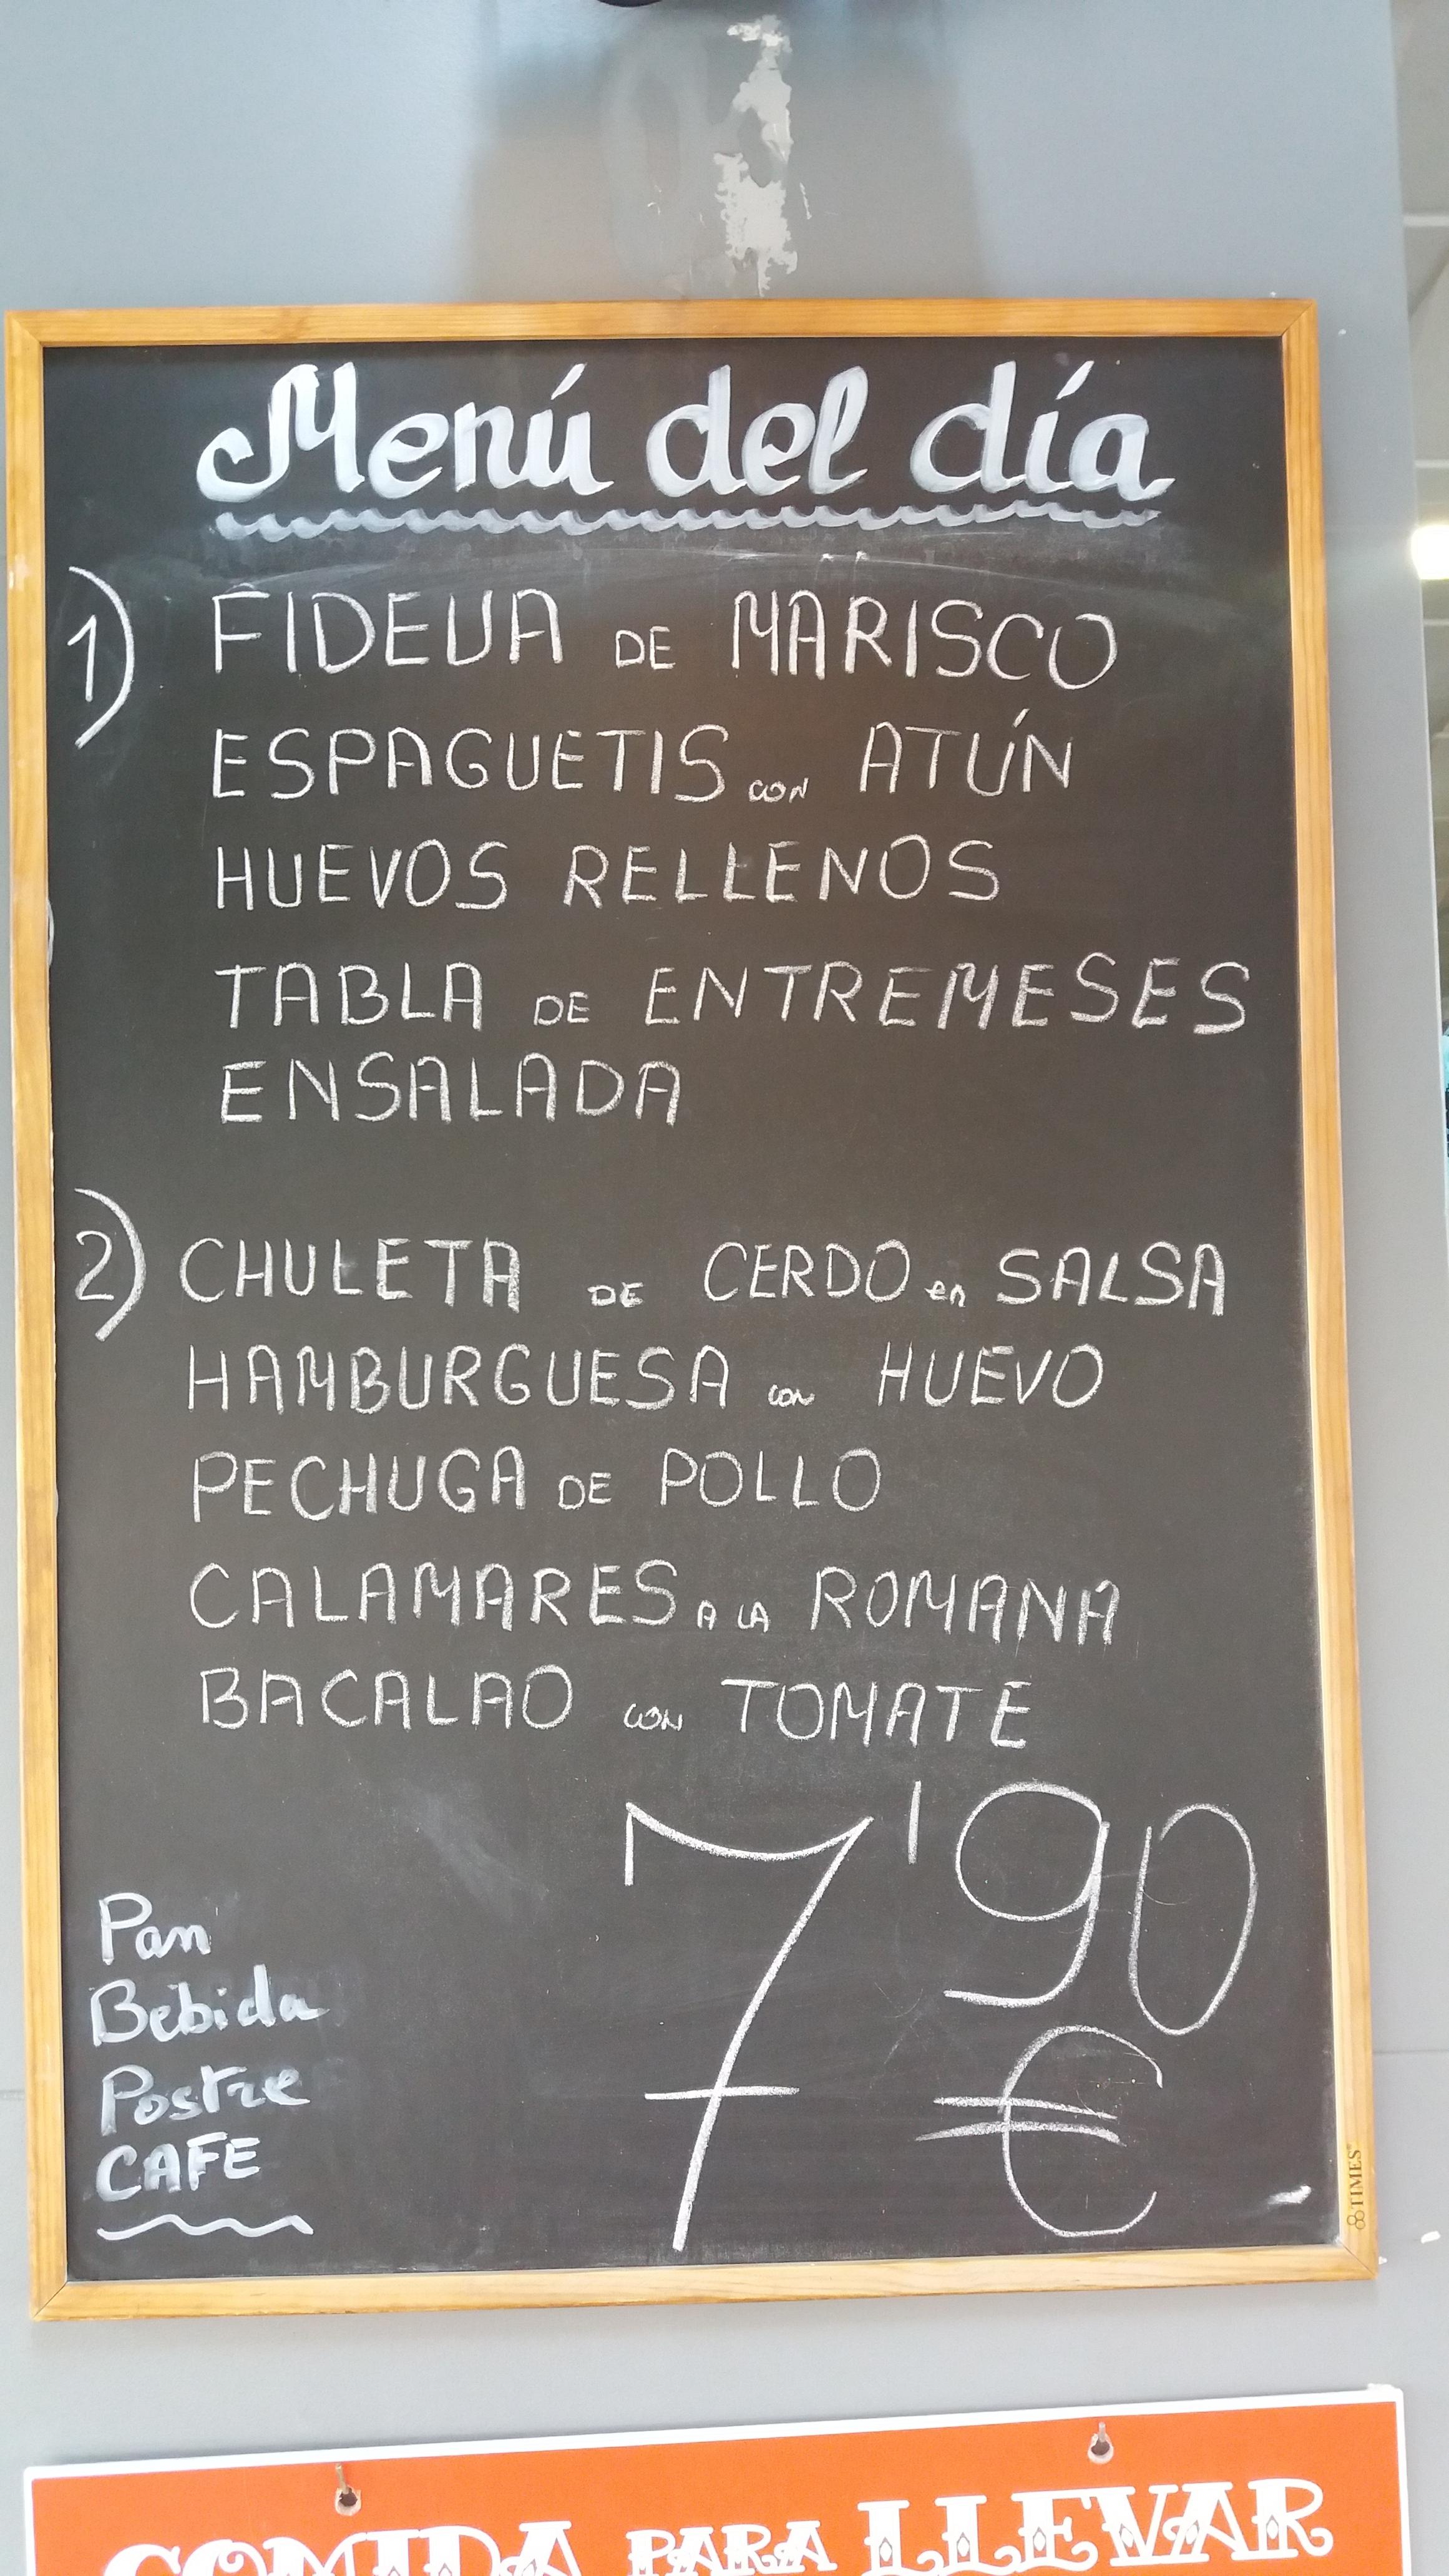 Menú del día
1) FIDEUA DE MARISCO
ESPAGUETIS CON ATÚN
HUEVOS RELLENOS
TABLA DE ENTREMESES
ENSALADA
2) CHULETA DE CERDO en SALSA
HAMBURGUESA CON HUEVO
PECHUGA DE POLLO
CALAMARES A LA ROMANA
BACALAO CON TOMATE
7'90
€
Pan
Bebida
Postre
CAFE
TIMES
COMIDA PARA LLEVAR